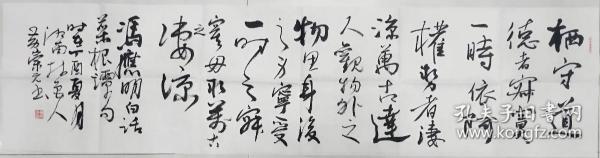 栖守道
德者寂寞
一時依阿
權勢者淒
涼萬古達
人觀物外之
物思身後
之身寧受
一时之寂
寞毋取萬古
之
凄涼
馮應明白話
菜根譚句
时在丁酉夏月
济南
孔夫子旧书网
www.kongfz.com